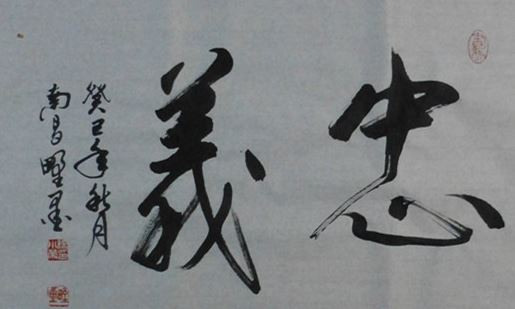 忠義
癸巳年秋月
南昌野墨